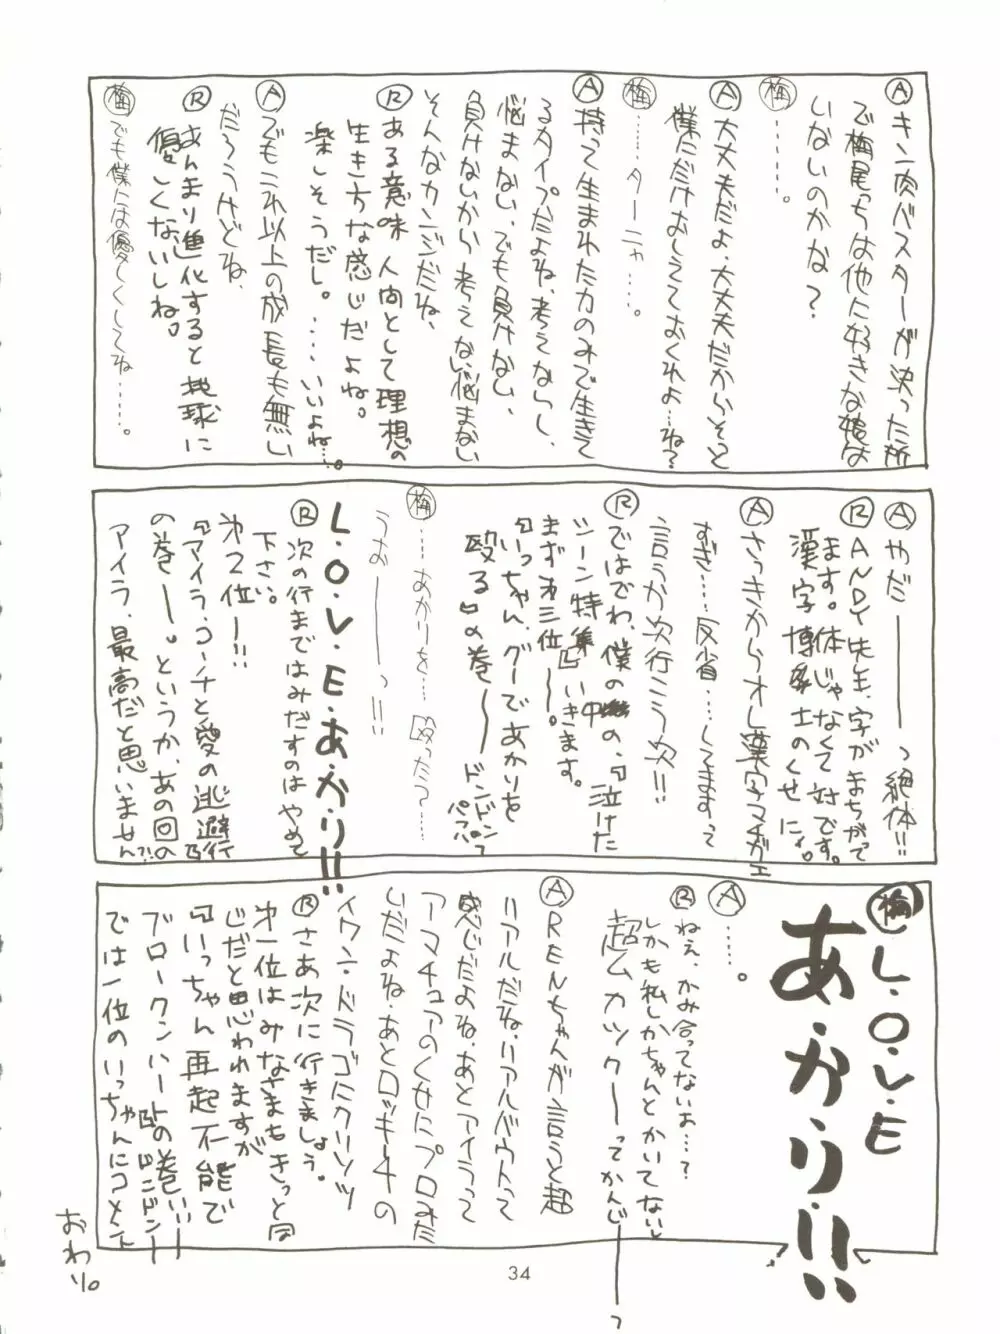 Ⓐキン肉バスターが決った所
で梅尾っちは他に好きな娘は
いないのかな？
㊗梅………。
Ⓐ大丈夫だよ、大丈夫だからそっと
僕にだけおしえておくれよ…ね？
梅………ターニャ……。
Ⓐ持って生まれた力のみで生きて
るタイプだよね、考えてないし、
悩まない、でも負けない、
負けないから考えない、悩まない
そんなカンジだね、
Ⓡある意味、人間として理想の
生き方な感じだよね。
楽しそうだし。……いいよね…。
Ⓐでもこれ以上の成長も無い
だろうけどね、
Ⓡあんまり進化すると地球に
優しくないしね。
梅でも僕には優しくしてね……。
Ⓐやだ――――っ絶体!!
ⓇANDY先生、字がまちがって
ます。体じゃなくて対です。
漢字博士のくせにょ。
Ⓐさっきからオレ漢字マチガエ
すぎ…、反省…してますって
言うか次行こう次!!
Ⓡではでわ、僕の中の、『泣けた
シーン特集』いきます。
まず第三位――。
『いっちゃん、グーであかりを
殴る』の巻――ドンドンパフパフっ
梅……あかりを…殴った？……
うお――――っ!!
L・O・V・E・あ・か・り!!
Ⓡ次の行まではみだすのはやめて
下さい。
第2位――!!
『アイラ、コーチと愛の逃避行』
の巻――。というか、あの回の
アイラ、最高だと思いません?!
梅L・O・V・E
あ・か・り・!!
Ⓐ……。
Ⓡねぇ、かみ合ってないよ…？
しかも私しかちゃんとかいてないし
超ムカツク――ってかんじ――――っ
ⒶRENちゃんが言うと超
リアルだね、リアルバウトって
感じだよね、あとアイラって
アーマチュアのくせにプロみた
いだよね、あとロッキー4の
イワン・ドラゴにクリソツ
Ⓡさあ次に行きましょう。
第一位はみなさまもきっと同
じだと思われますが
『いっちゃん再起不能で
ブロークンハート』の巻い――
ドンドン――
では一位のいっちゃんにコメント
おわり。
34